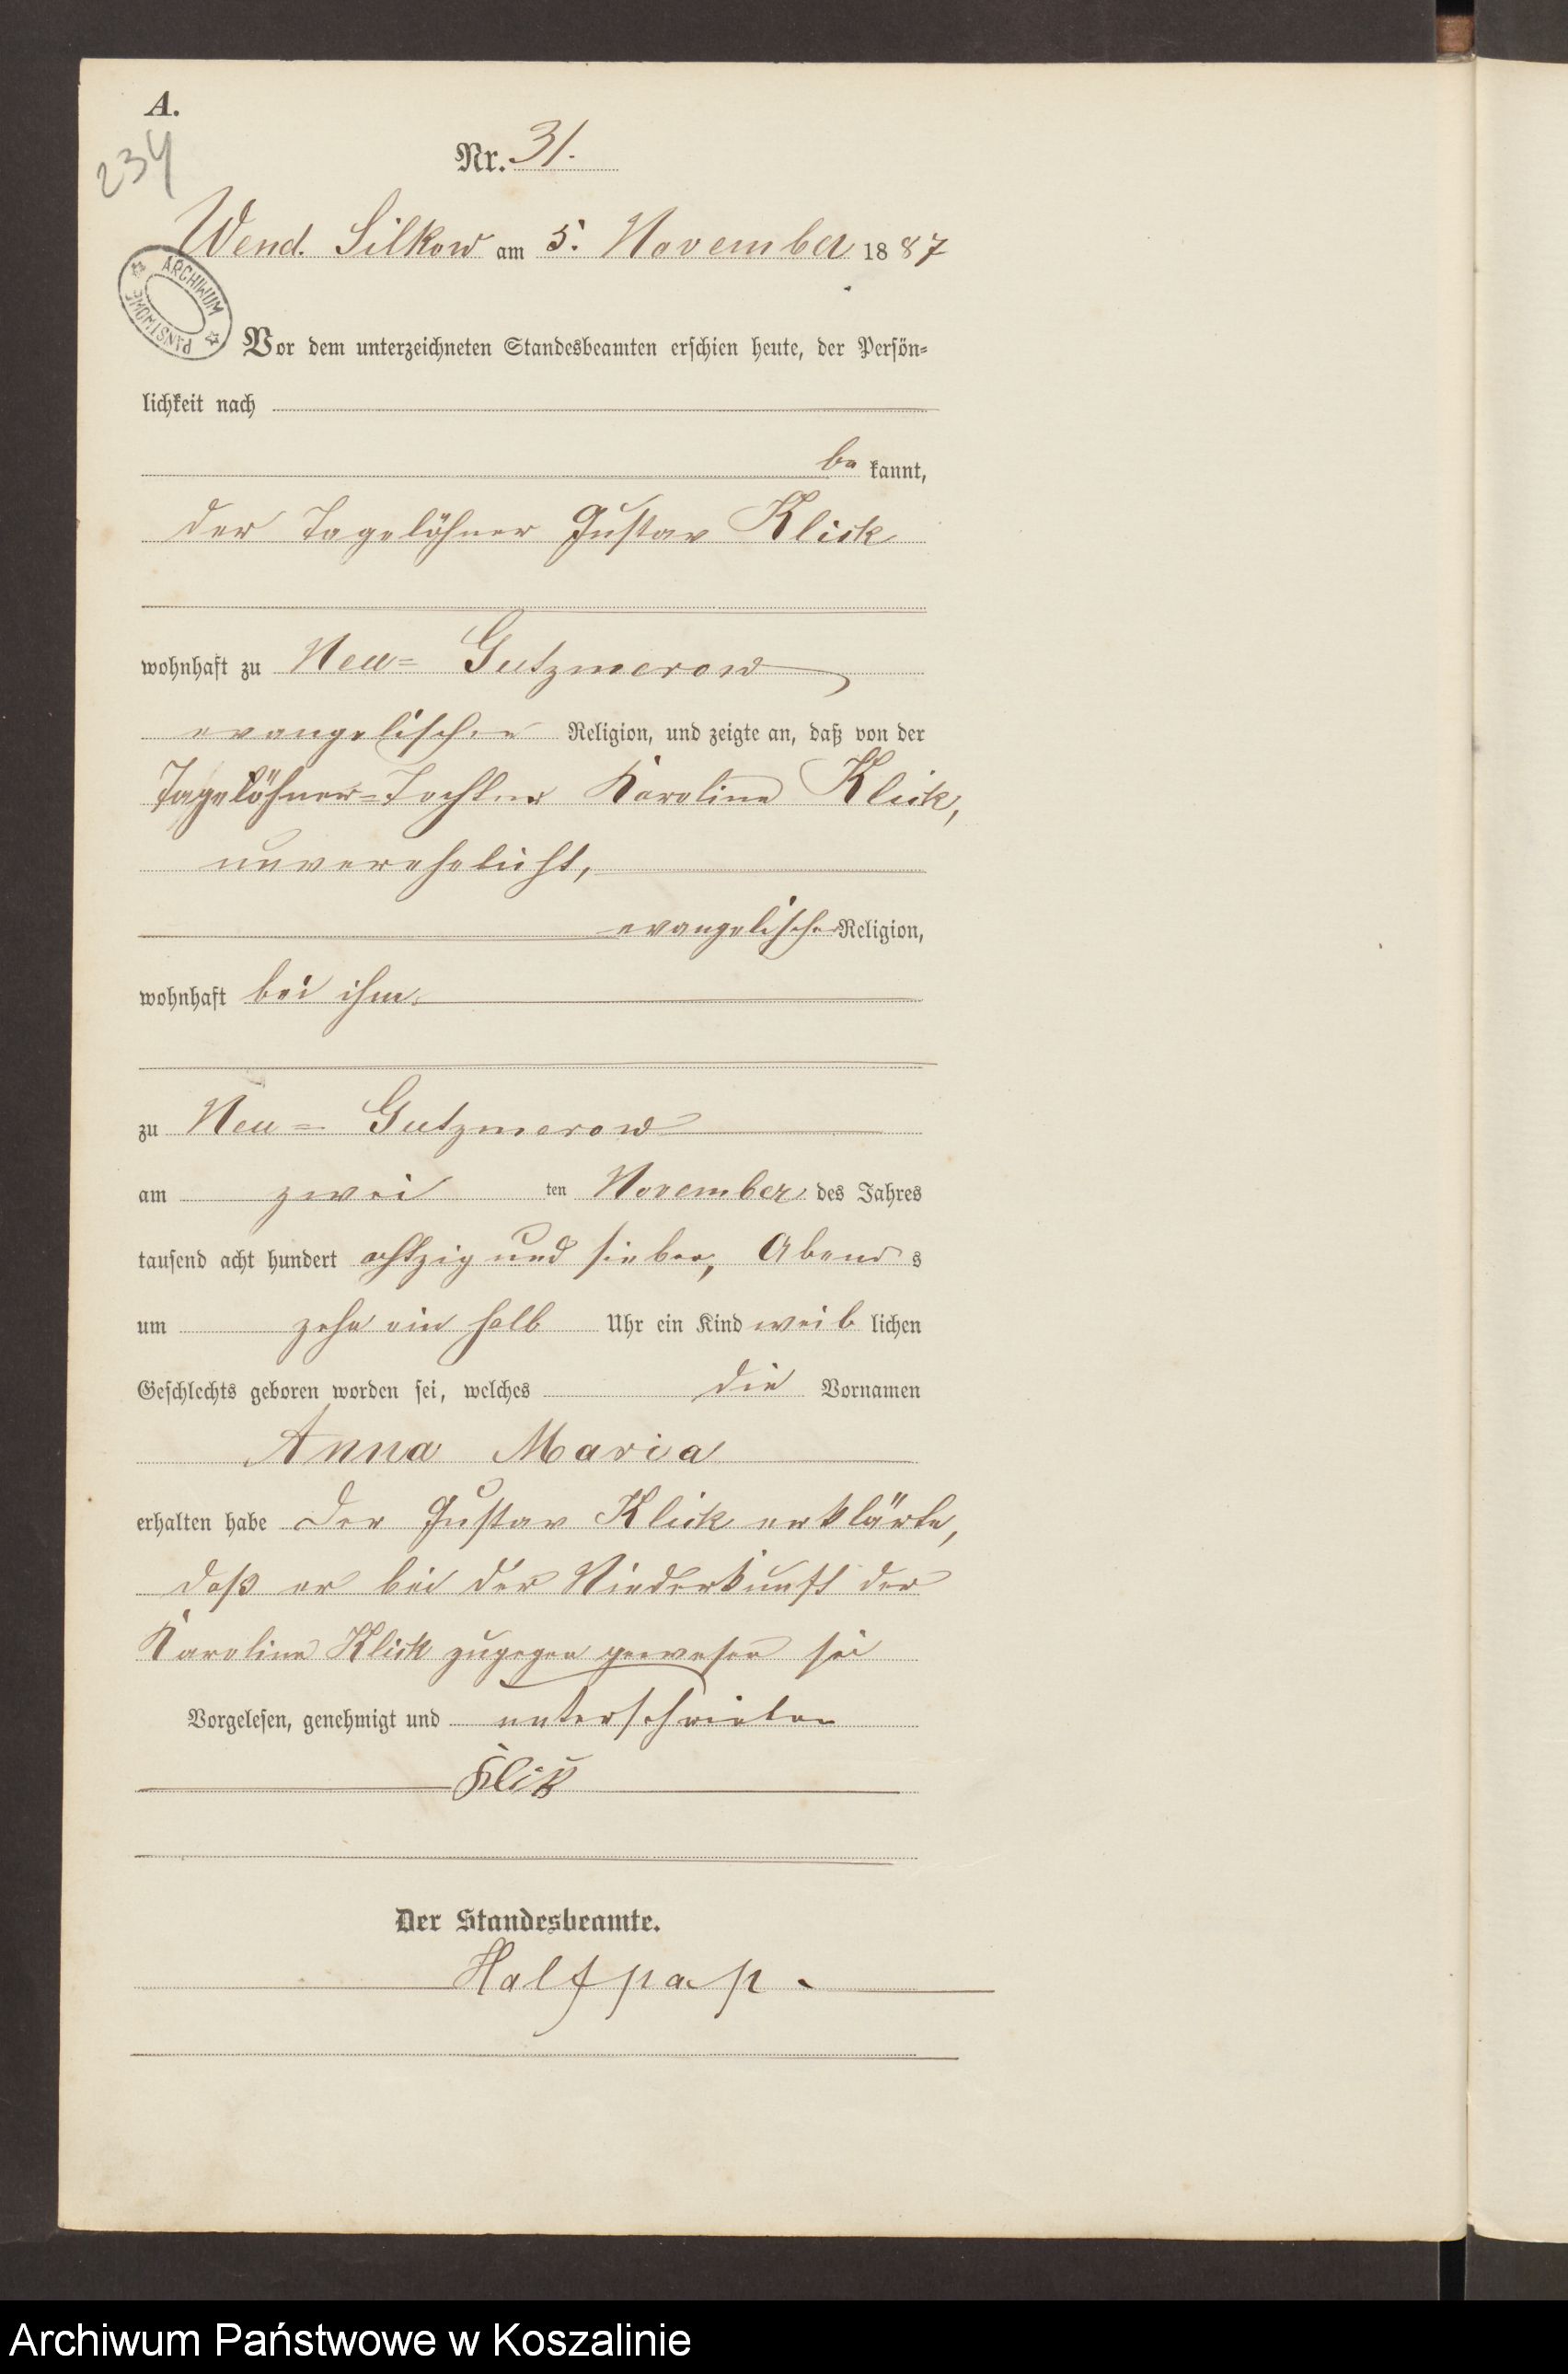 A.
234
Nr. 31.
Wend. Silkow am 5. November 1887
ARCHIWUM PAŃSTWOWE
Vor dem unterzeichneten Standesbeamten erschien heute, der Persön-
lichkeit nach
be kannt,
der Tagelöhner Gustav Klick
wohnhaft zu Neu- Gutzmerow
evangelischer Religion, und zeigte an, daß von der
Tagelöhner-Tochter Karoline Klick,
unverehelicht,
evangelischer Religion,
wohnhaft bei ihm
zu Neu- Gutzmerow
am zwei ten November des Jahres
tausend acht hundert achtzig und sieben, Abend s
um zehn ein halb Uhr ein Kind weib lichen
Geschlechts geboren worden sei, welches die Vornamen
Anna Maria
erhalten habe Der Gustav Klick erklärte,
daß er bei der Niederkunft der
Karoline Klick zugegen gewesen sei
Vorgelesen, genehmigt und unterschrieben
Klik
Der Standesbeamte.
Halfpap.
Archiwum Państwowe w Koszalinie